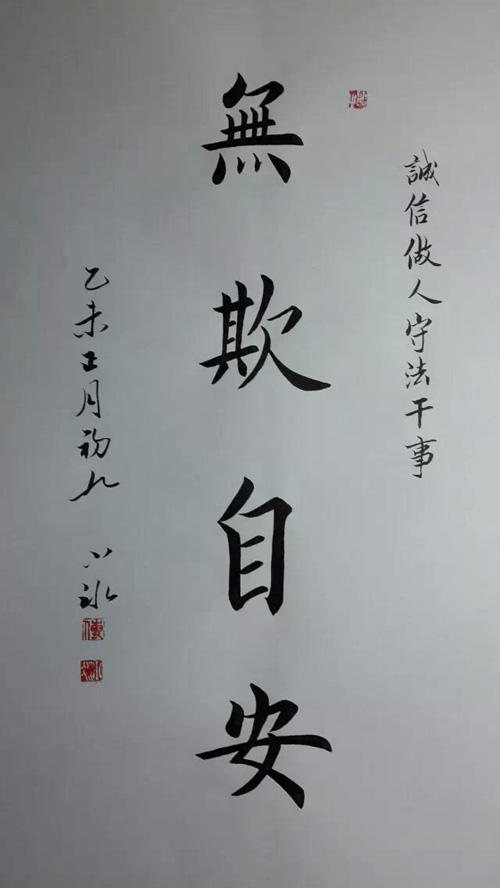 誠信做人守法干事
無欺自安
乙未五月初九 小冰